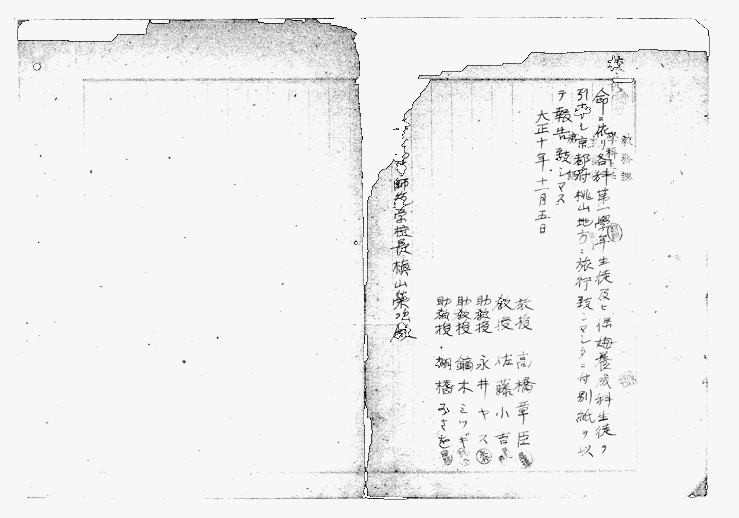 命ニ依リ各科第一學年生徒及ヒ保姆養成科生徒ヲ
引率シ京都府桃山地方ニ旅行致シマシタニ付別紙ヲ以
テ報告致シマス
大正十年十一月五日
教授 高橋章臣
教授 佐藤小吉
助教授 永井ヤス
助教授 鏑木ミツギ
助教授 棚橋
師範学校長槇山榮次殿